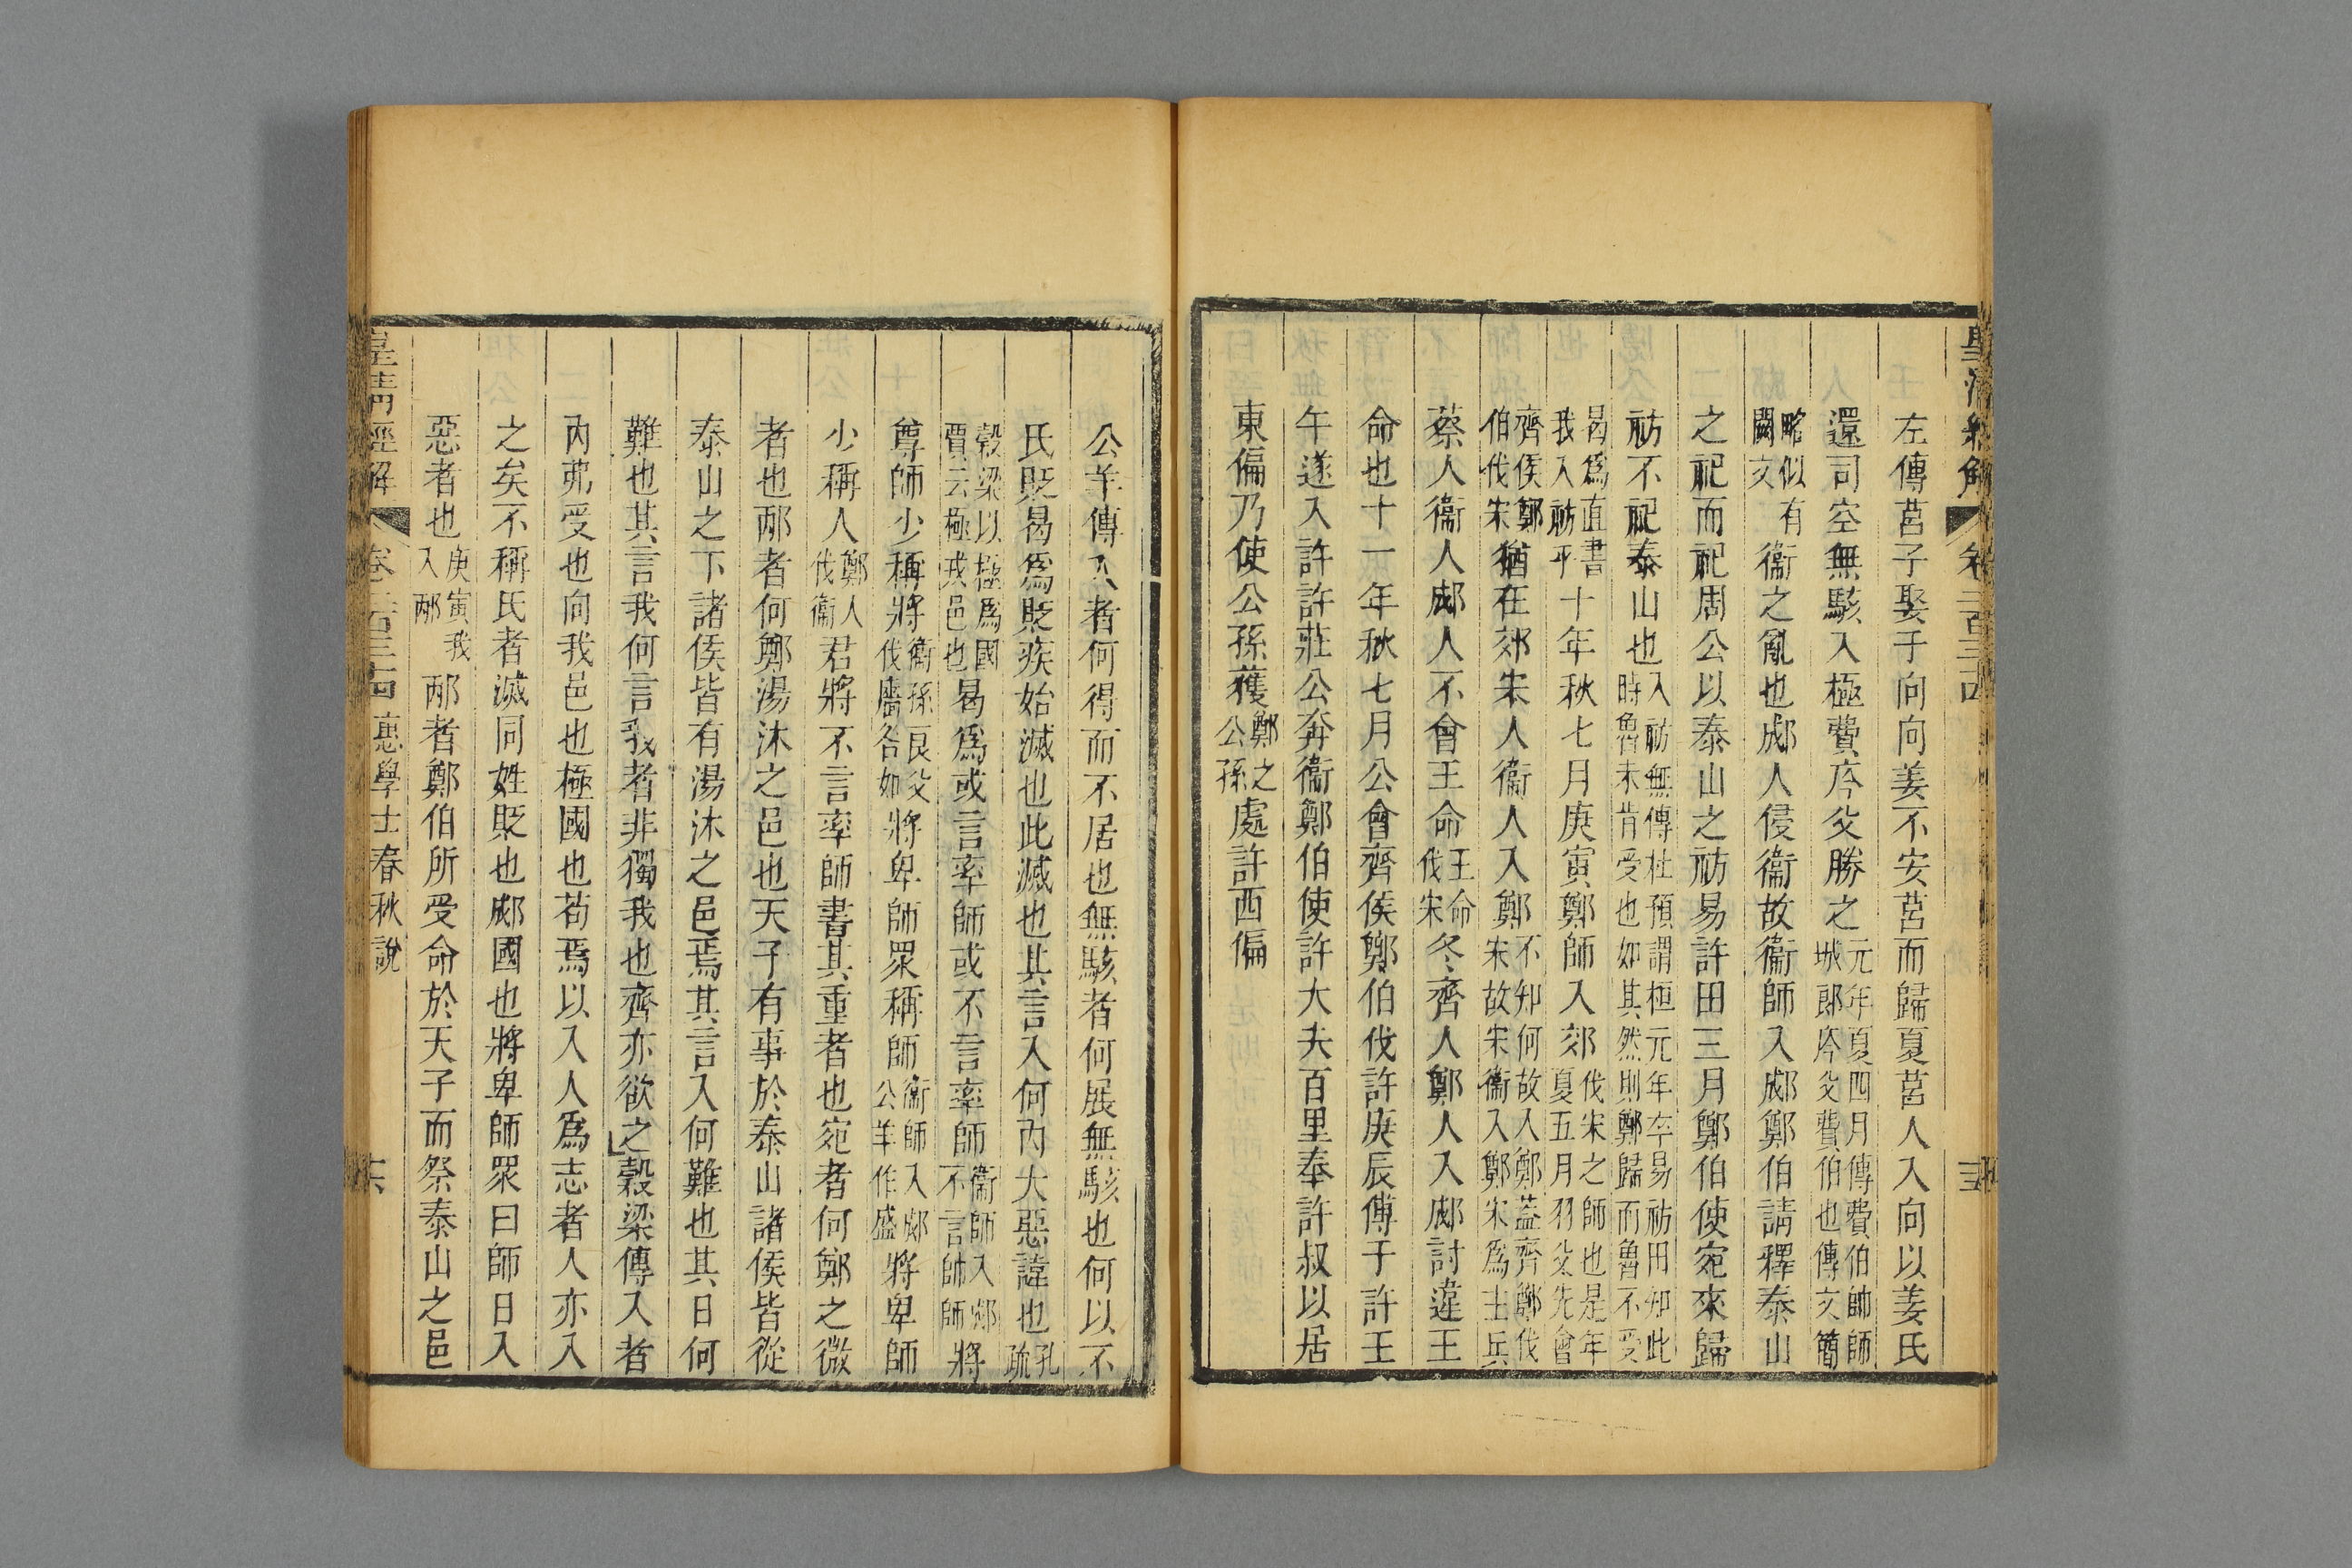 左傳莒子娶于向向姜不安莒而歸夏莒人入向以姜氏
還司空無駭入極費庈父勝之元年夏四月傳費伯帥師城郎庈父費伯也傳文簡
略似有闕文衞之亂也郕人侵衞故衞師入郕鄭伯請釋泰山
之祀而祀周公以泰山之祊易許田三月鄭伯使宛來歸
祊不祀泰山也入祊無傳杜預謂桓元年卒易祊田知此時魯未肯受也如其然則鄭歸而魯不受
曷爲直書我入祊乎十年秋七月庚寅鄭師入郊伐宋之師也是年夏五月羽父先會
齊侯鄭伯伐宋猶在郊宋人衞人入鄭不知何故入鄭蓋齊鄭伐宋故宋衞入鄭宋爲主兵
蔡人衞人郕人不會王命王命伐宋冬齊人鄭人入郕討違王
命也十一年秋七月公會齊侯鄭伯伐許庚辰傅于許壬
午遂入許許莊公奔衞鄭伯使許大夫百里奉許叔以居
東偏乃使公孫獲鄭之公孫處許西偏
公羊傳入者何得而不居也無駭者何展無駭也何以不
氏貶曷爲貶疾始滅也此滅也其言入何內大惡諱也孔疏
穀梁以極爲國賈云極戎邑也曷爲或言率師或不言率師衞師入郕不言帥師將
尊師少稱將衞孫良父伐廧咎如將卑師眾稱師衞師入郕公羊作盛將卑師
少稱人鄭人伐衞君將不言率師書其重者也宛者何鄭之微
者也邴者何鄭湯沐之邑也天子有事於泰山諸侯皆從
泰山之下諸侯皆有湯沐之邑焉其言入何難也其日何
難也其言我何言我者非獨我也齊亦欲之穀梁傳入者
內弗受也向我邑也極國也苟焉以入人爲志者人亦入
之矣不稱氏者滅同姓貶也郕國也將卑師眾曰師日入
惡者也庚寅我入邴邴者鄭伯所受命於天子而祭泰山之邑
皇清經解 卷二百三十四 惠學士春秋說 十六